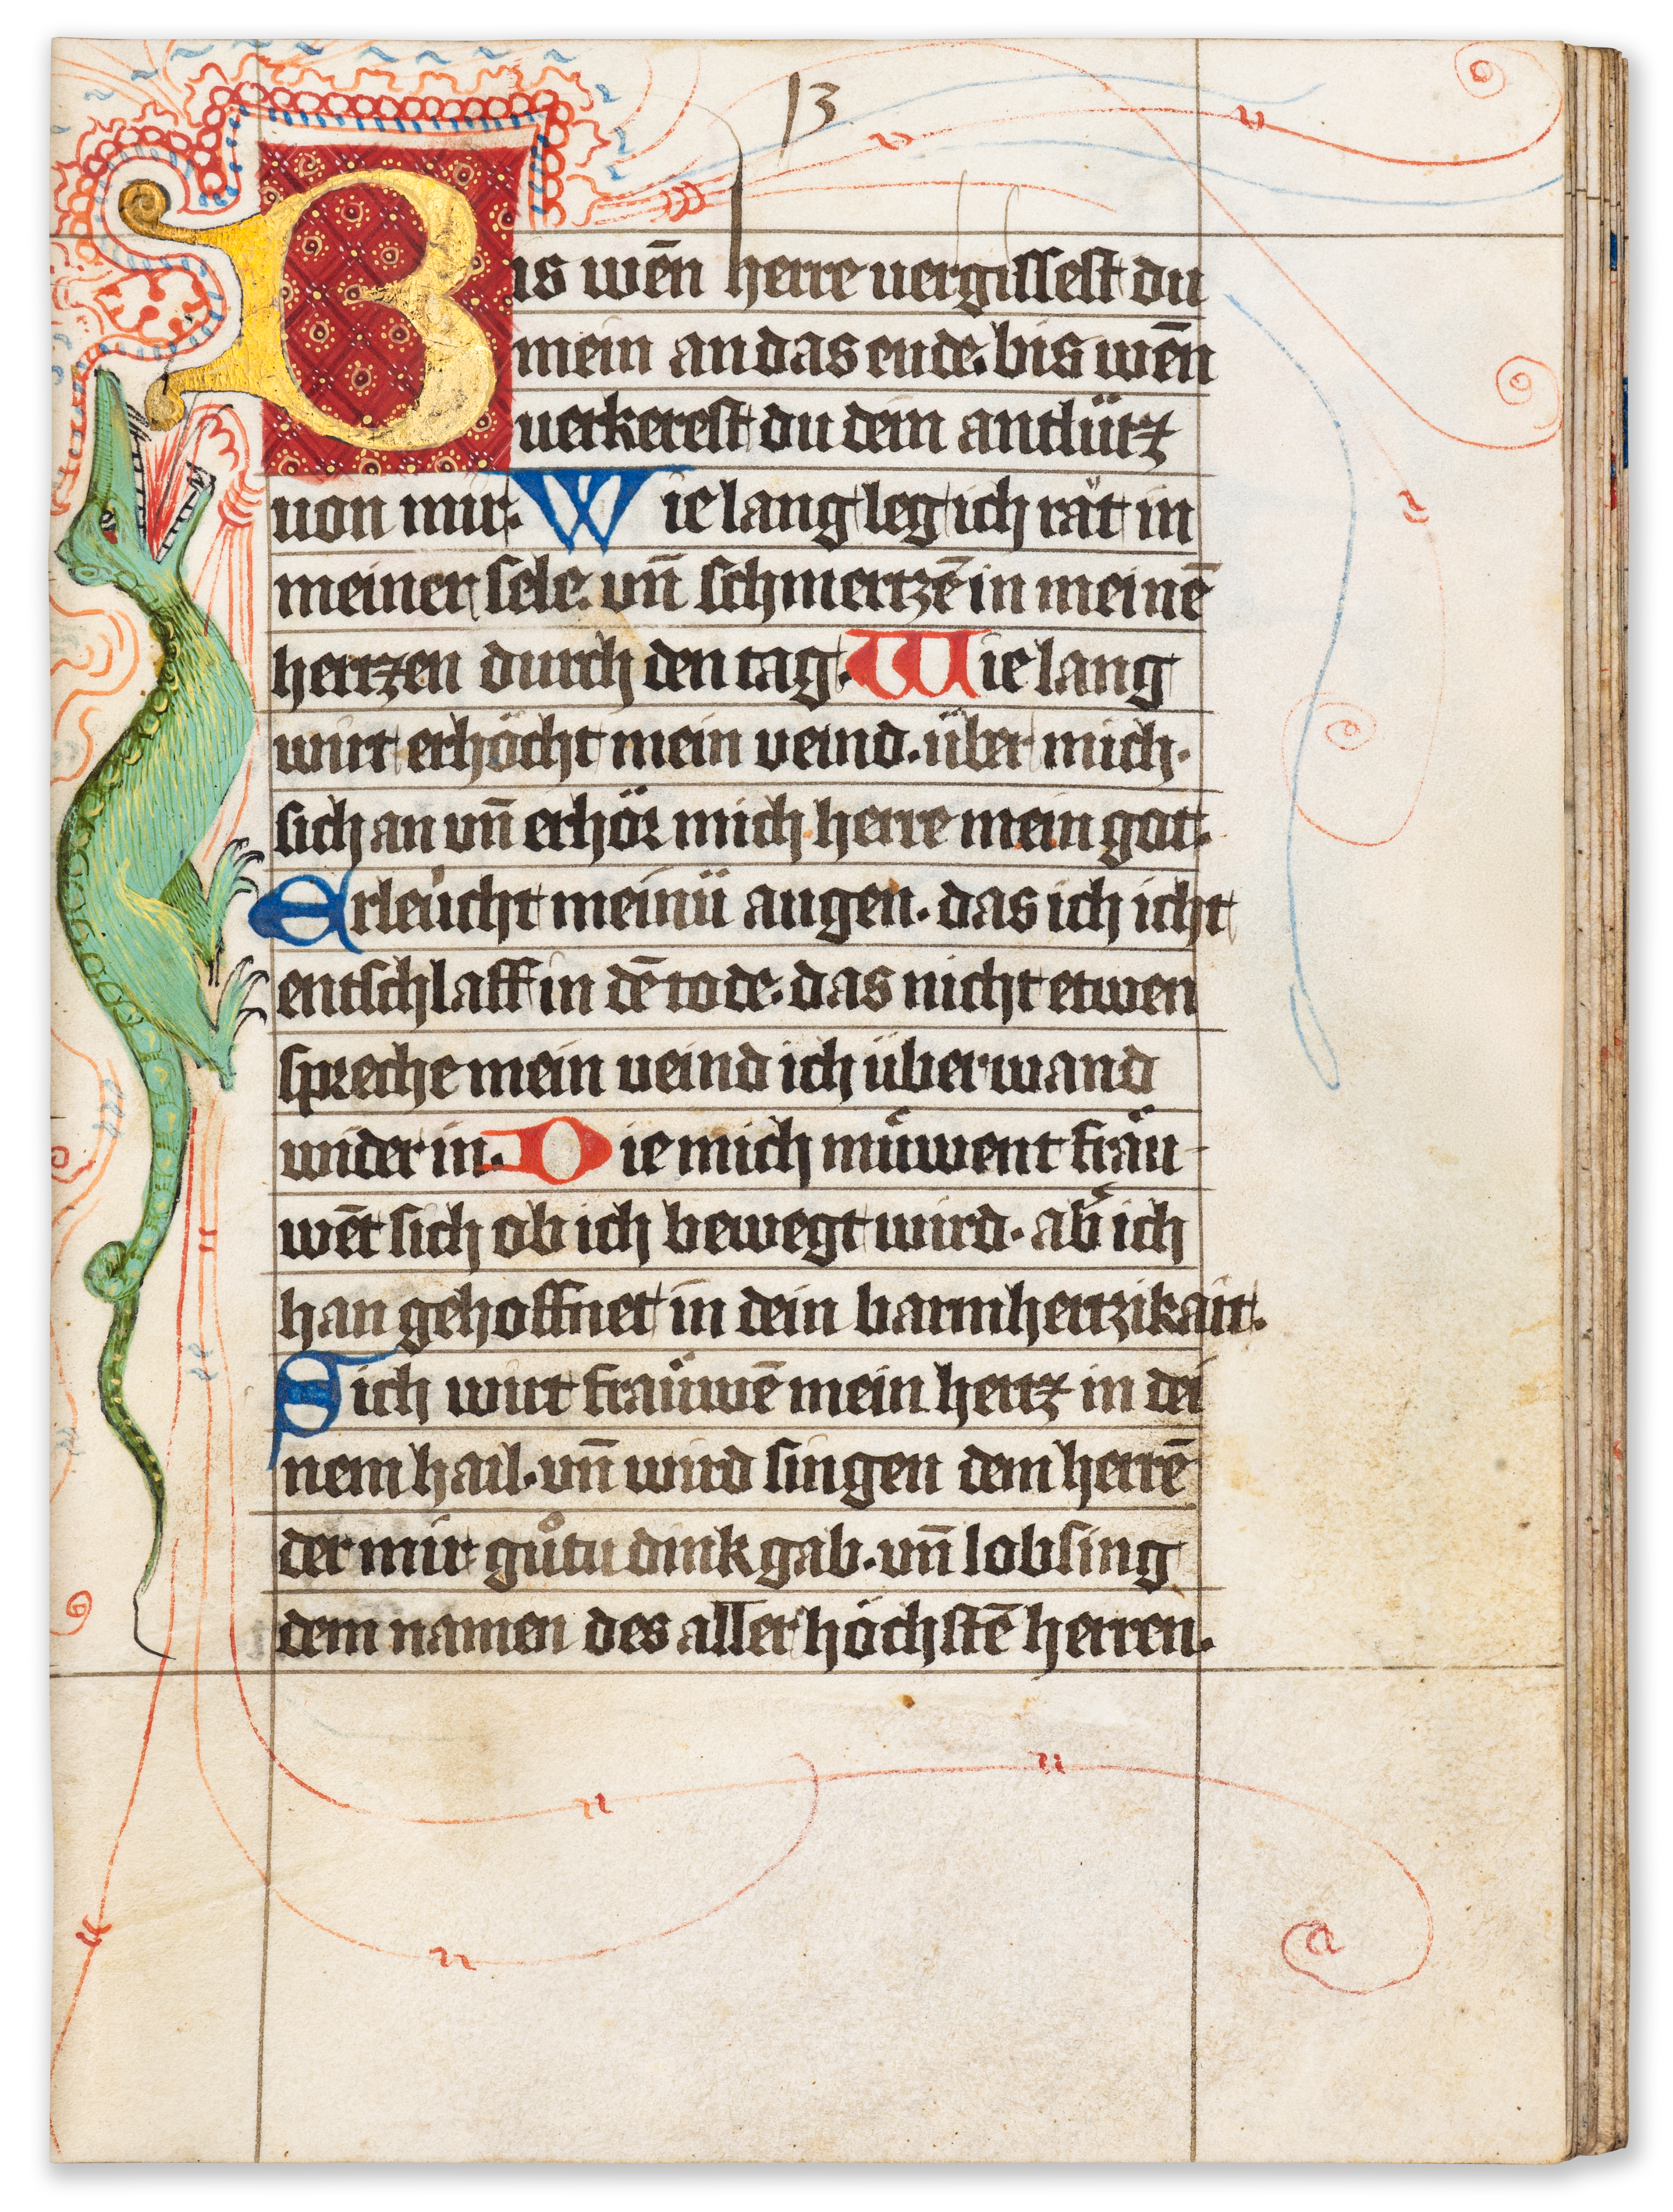 13
Bis wēn herre uergissest du
mein an das ende. bis wēn
uerkerest du dein antlütz
uon mir. Wie lang leg ich rät in
meiner sele. vn̄ schmertzē in meinē
hertzen durch den tag. Wie lang
wirt erhöcht mein veind. über mich.
sich an vn̄ erhör mich herre mein got.
Erleücht meinü augen. das ich icht
entschlaff in dē tode. das nicht etwen
spreche mein veind ich überwand
wider in. Die mich müwent fräu-
wēt sich ob ich bewegt wird. ab̾ ich
han gehoffnet in dein barmhertzikait.
Sich wirt fräüwē mein hertz in dei
nem hail. vn̄ wird singen dem herrē
der mir gůtu dink gab. vn̄ lobsing
dem namen des aller höchstē herren.